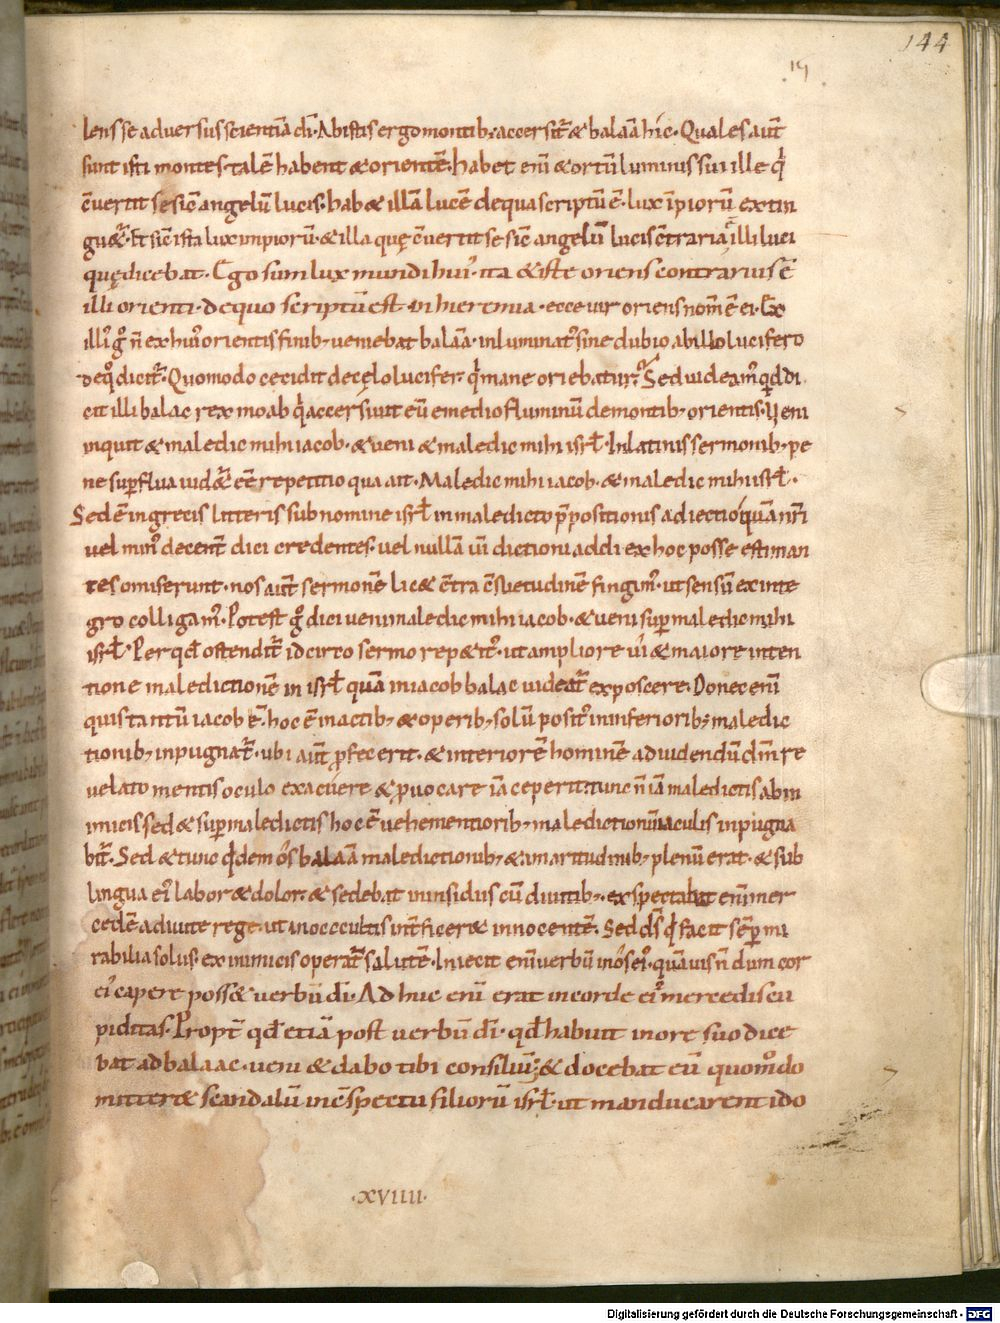 144
19
lens se aduersus scientiā di͞. Ab istis ergo montib; accersit᷑ & balaā hic. Quales aut͞
sunt isti montes. talē habent & orientē. habet eni͞ & ortū luminis sui ille qͥ
c̄uertit se sic̄ angelū lucis. hab& illā lucē de qua scriptū ē. lux īpiorū extin
gu&᷑. Et sic̄ ista lux impiorū. & illa quę c̄uertit se sic̄ angelū lucis c̄traria ē illi luci
quę dicebat. Ego sum lux mundi hui᷒. ita & iste oriens contrarius ē
illi orienti. de quo scriptū est in hieremia. ecce uir oriens nom̄ ē ei. Ex
illi᷒ g̊ n̄ ex hui᷒ orientis finib; ueniebat balaā. inluminat᷒ sine dubio ab illo lucifero
de q̊ dicit᷑. Quomodo cecidit de cęlo lucifer. qͥ mane oriebatur. Sed uideam᷒ qd̄ di
cit illi balac rex moab qͥ accersiuit eū e medio fluminū de montib; orientis. Veni
inquit & maledic mihi iacob. & ueni & maledic mihi isrl̄. In latinis sermonib; pe
ne sup̄flua uid&᷑ eē repetitio qua ait. Maledic mihi iacob. & maledic mihi isrl̄.
Sed ē in grecis litteris sub nomine isrl̄ in maledicto p̄positionis adiectio quā nr̄i
uel min᷒ decent͞ dici credentes. uel nullā ui͞ dictioni addi ex hoc posse estiman
tes omiserunt. nos aut͞ sermonē lic& c̄tra c̄suetudinē fingim᷒. ut sensū ex inte
gro colligam᷒. Potest g̊ dici ueni maledic mihi iacob. & ueni sup̄maledic mihi
isrl̄. Per qd̄ ostendit᷑ idcirco sermo rep&it᷒. ut ampliore ui͞ & maiore inten
tione maledictionē in isrl̄ quā in iacob balac uideat᷑ exposcere. Donec eni͞
quis tantū iacob ē. hoc ē in actib; & operib; solū posit᷒ in inferiorib; maledic
tionib; inpugnat᷑. ubi aut͞ p̄fecerit. & interiorē hominē ad uidendū dm̄ re
uelato mentis oculo exacuere & p̄uocare iā ceperit. tunc n̄ iā maledictis ab in
imicis sed & sup̄maledictis hoc ē uehementiorib; maledictionū iaculis inpugna
bit᷑. Sed & tunc qͥdem os̄ balaā maledictionib; & amaritudinib; plenū erat. & sub
lingua ei᷒ labor & dolor. & sedebat in insidiis cū diuitib;. expectabat enī mer
cedē a diuite rege. ut in occultis int͞ficer& innocentē. Sed ds̄ qͥ facit sēp mi
rabilia solus. ex inimicis operat᷑ salutē. Iniecit enī uerbū in os̄ ei᷒. quāuis n̄ dum cor
ei᷒ capere poss& uerbū di͞. Adhuc enī erat in corde ei᷒ mercedis cu
piditas. Propt͞ qd̄ etiā post uerbū di͞. qd̄ habuit in ore suo dice
bat ad balaac. ueni & dabo tibi consiliū; & docebat eū quom̊do
mitter& scandalū in c̄spectu filiorū isrl̄. ut manducarent ido
·XVIIII·
Digitalisierung gefördert durch die Deutsche Forschungsgemeinschaft - DFG